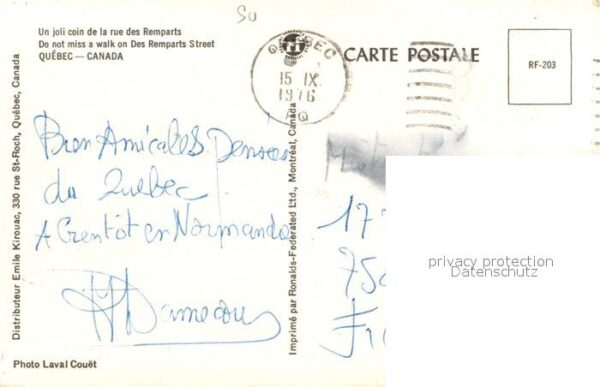 Un joli coin de la rue des Remparts
Do not miss a walk on Des Remparts Street
QUÉBEC — CANADA
50
QUÉBEC
15 IX
1976
P Q
CARTE POSTALE
RF-203
Distributeur Emile Kirouac, 330 rue St-Roch, Québec, Canada
Bien Amicales Pensées
du Quebec
A Bientôt en Normandie
Imprimé par Ronalds-Federated Ltd., Montréal, Canada
17
750
Photo Laval Couët
privacy protection
Datenschutz